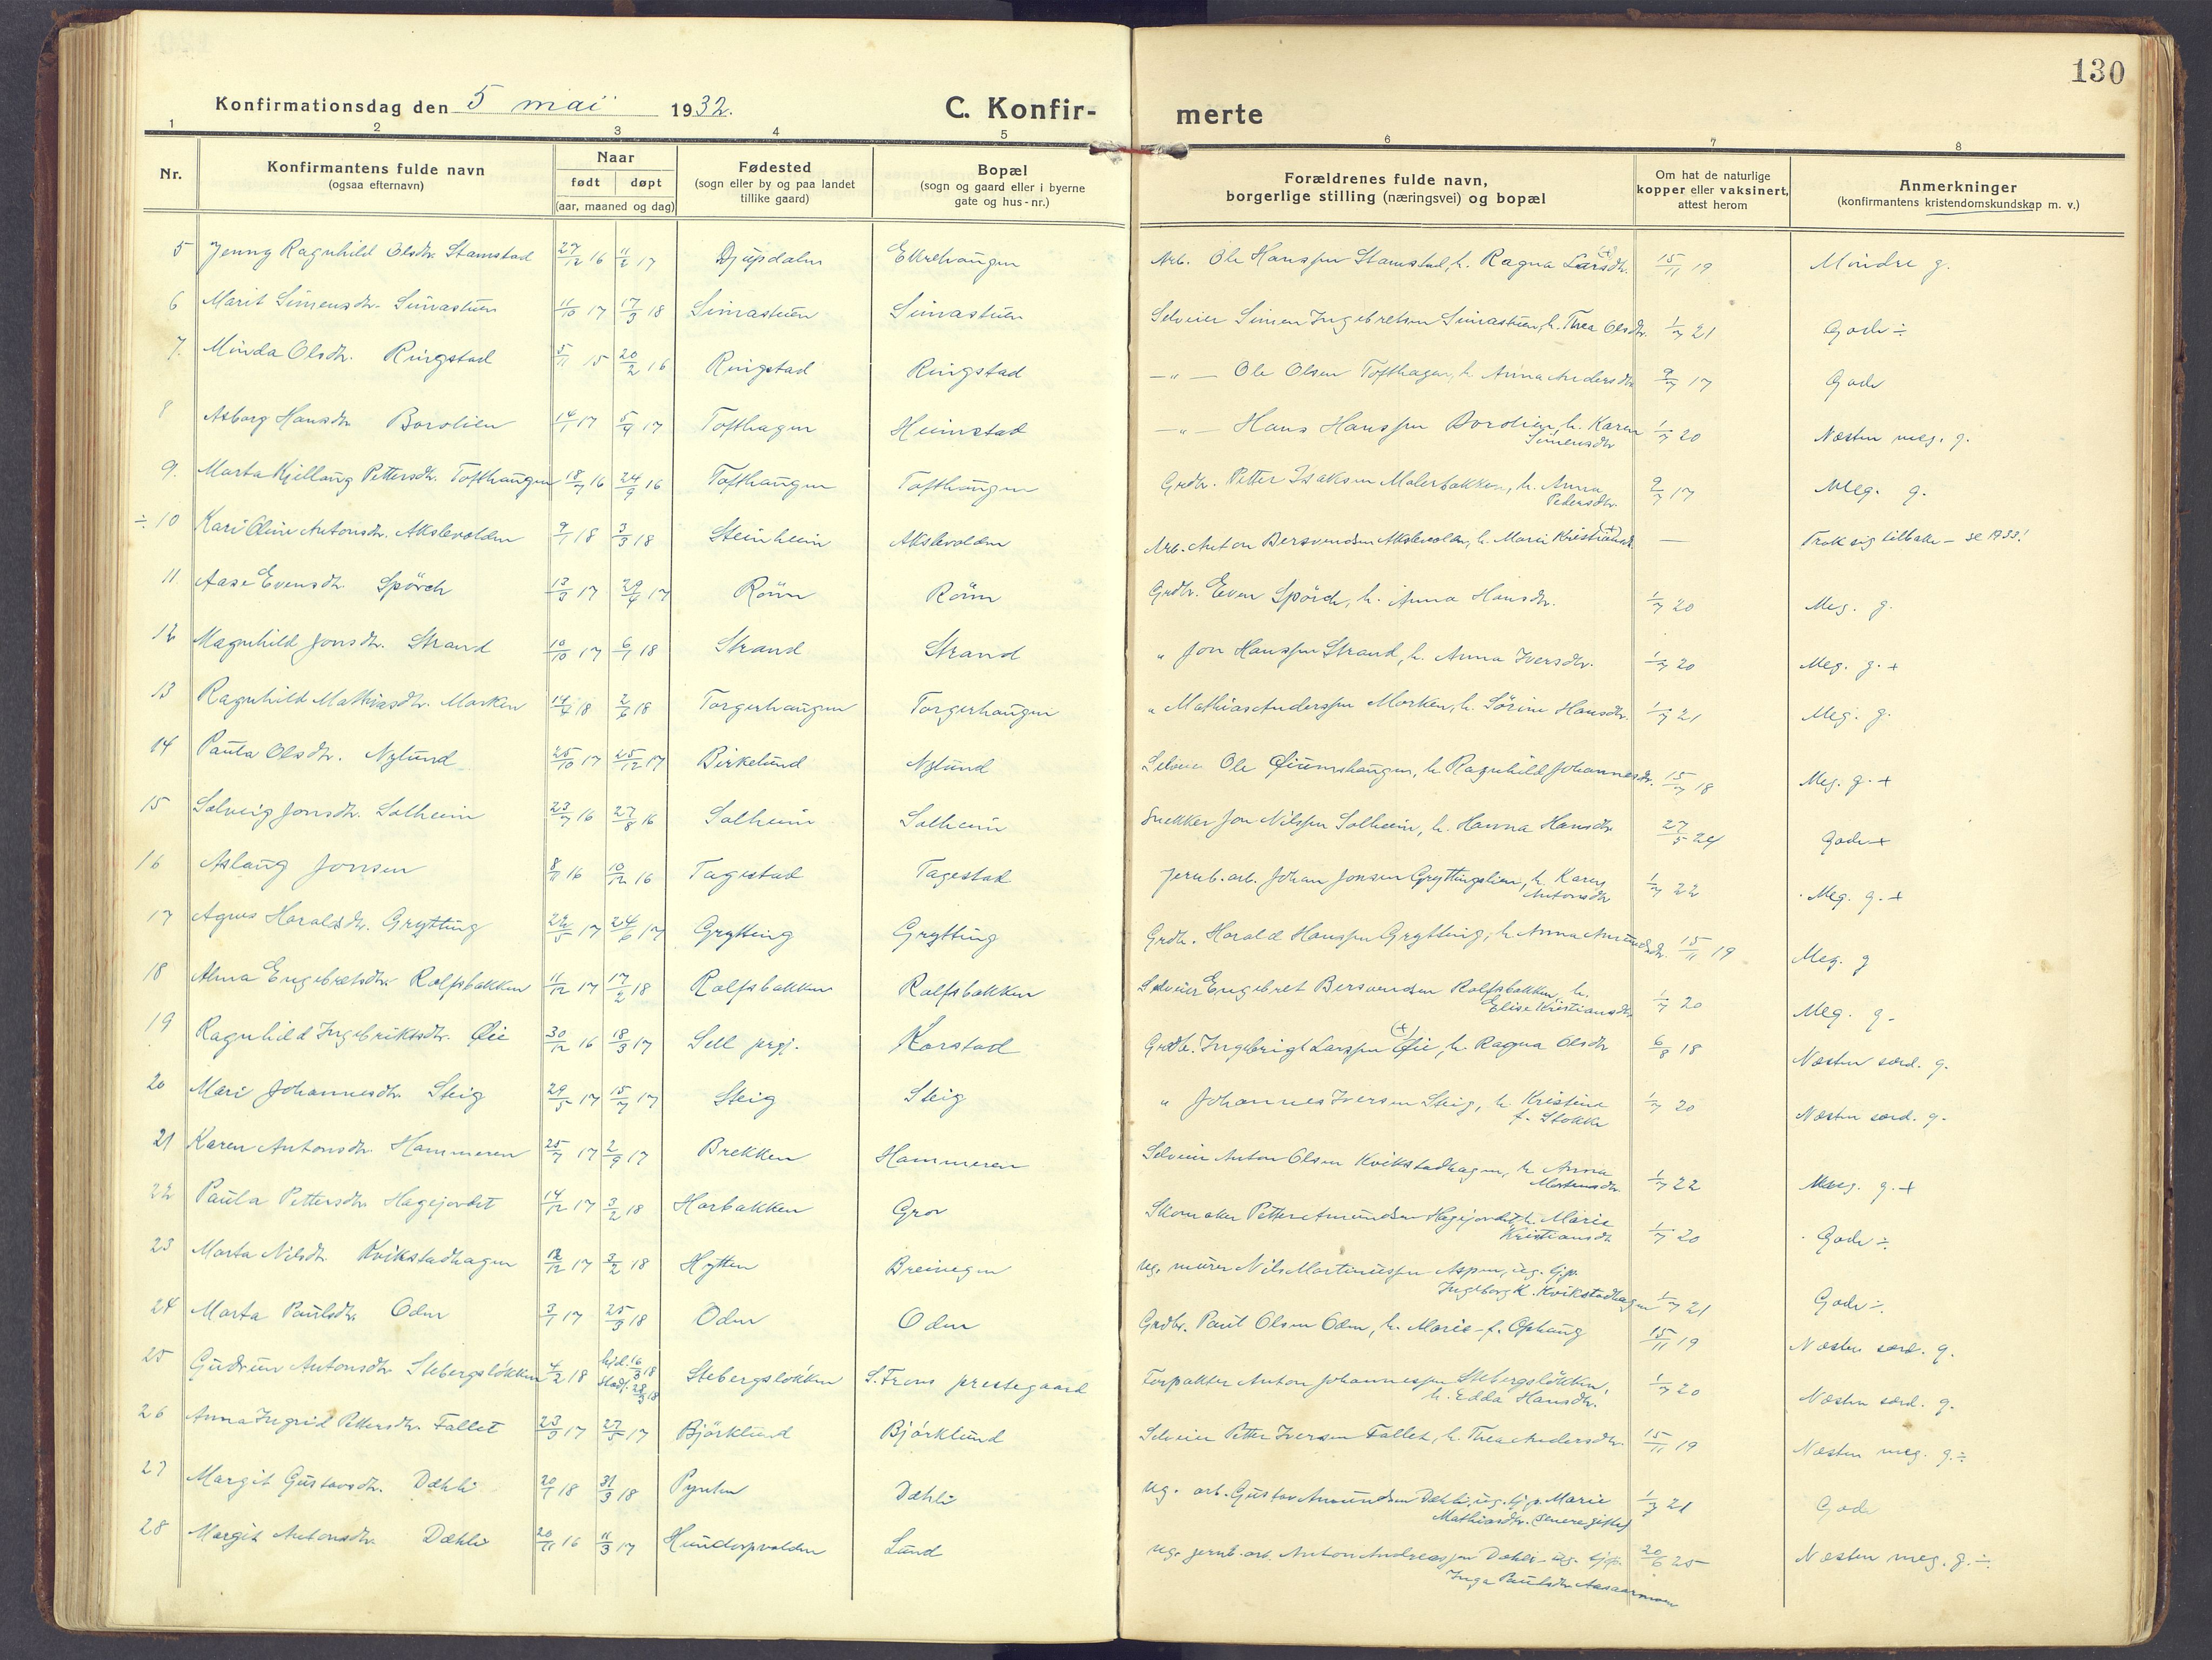 130
Konfirmationsdag den 5 mai 1932. C. Konfir- merte
1 2 3 4 5 6 7 8
Nr. Konfirmantens fulde navn (ogsaa efternavn) Naar født døpt (aar, maaned og dag) Fødested (sogn eller by og paa landet tillike gaard) Bopæl (sogn og gaard eller i byerne gate og hus-nr.) Forældrenes fulde navn, borgerlige stilling (næringsvei) og bopæl Om hat de naturlige kopper eller vaksinert, attest herom Anmerkninger (konfirmantens kristendomskundskap m. v.)
5 Jenny Ragnhild Olsdtr. Stamstad 27/12 16 11/2 17 Djupdalen Ekrehaugen Arb. Ole Hanssen Stamstad, h. Ragna Larsdtr. (+) 15/11 19 Mindre g.
6 Marit Simensdtr. Simastuen 11/10 17 17/3 18 Simastuen Simastuen Selveier Simen Ingebretsen Simastuen, h. Thea Olsdtr. 1/7 21 Godt ÷
7. Minda Olsdtr. Ringstad 5/11 15 20/2 16 Ringstad Ringstad —"— Ole Olsen Tofthagen, h. Anna Andersdtr. 9/7 17 Godt
8 Asborg Hansdtr. Borolien 14/1 17 5/4 17 Tofthagen Heimstad —"— Hans Hanssen Borolien, h. Karen Simensdtr 1/7 20 Næsten meg. g.
9. Marta Kjellaug Pettersdtr. Tofthaugen 18/7 16 24/9 16 Tofthaugen Tofthaugen Grdbr. Petter Isaksen Malerbakken, h. Anna Pedersdtr. 9/7 17 Meg. g.
÷ 10 Kari Oline Antonsdtr. Akslevolden 9/1 18 3/3 18 Steinheim Akslevolden Arb. Anton Bersvendsen Akslevolden, h. Marie Kristiansd. (+) — Trak sig tilbake – se 1933!
11 Aase Evensdtr. Spörck 13/3 17 29/4 17 Rönn Rönn Grdbr. Even Spörck, h. Anna Hansdtr. 1/7 20 Meg. g.
12 Magnhild Jonsdtr. Strand 10/10 17 6/1 18 Strand Strand " Jon Hanssen Strand, h. Anna Iversdtr. 1/7 20 Meg. g. +
13 Ragnhild Mathiasdtr. Morken 14/4 18 2/6 18 Torgerhaugen Torgerhaugen " Mathias Anderssen Morken, h. Sörine Hansdtr. 1/7 21 Meg. g.
14 Paula Olsdtr. Nylund 25/10 17 25/12 17 Birkelund Nylund Selveier Ole Öiumshaugen, h. Ragnhild Johannesdtr. 15/7 18 Meg. g. +
15 Solveig Jonsdtr. Solheim 23/7 16 27/8 16 Solheim Solheim Snekker Jon Nilssen Solheim, h. Hanna Hansdtr 27/5 24 Godt +
16 Aslaug Jonsen 8/11 16 10/12 16 Tagestad Tagestad Jernb. arb. Johan Jonsen Gryttingslien, h. Karen Antonsdtr 1/7 22 Meg. g. +
17 Agnes Haraldsdtr. Grytting 22/5 17 24/6 17 Grytting Grytting Grdbr. Harald Hanssen Grytting, h. Anna Amundsdtr. 15/11 19 Meg. g
18 Alma Engebretsdtr. Rolfsbakken 11/12 17 17/2 18 Rolfsbakken Rolfsbakken Selveier Engebret Bersvendsen Rolfsbakken, h. Elise Kristiansdtr 1/7 20 Meg. g.
19 Ragnhild Ingebriktsdtr. Öie 30/12 16 18/3 17 Sell prgj. Korstad Grdbr. Ingebrigt Larssen Öie (+), h. Ragna Olsdtr 6/8 18 Næsten særd. g.
20 Mari Johannesdtr. Steig 29/5 17 15/7 17 Steig Steig " Johannes Iversen Steig, h. Kristine f. Stokke 1/7 20 Næsten særd. g.
21 Karen Antonsdtr. Hammeren 25/7 17 2/9 17 Brekken Hammeren Selveier Anton Olsen Kvikstadhagen, h. Anna Mortensdtr. 1/7 22 Meg. g. +
22 Paula Pettersdtr. Hagejordet 14/12 17 3/2 18 Horbakken Grov Skomaker Petter Amundsen Hagejordet, h. Marie Kristiansdt 1/7 20 Godt ÷.
23 Marta Nilsdtr. Kvikstadhagen 12/12 17 3/2 18 Hytten Breivegen Ug. murer Nils Martinussen Aspen, ug. tjp. Ingeborg K. Kvikstadhagen 1/7 21 Godt ÷.
24 Marta Paulsdtr. Oden 3/1 17 25/3 18 Oden Oden Grdbr. Paul Olsen Oden, h. Marie f. Ophaug 15/11 19 Næsten særd. g.
25 Gudrun Antonsdtr. Stebergslökken 4/2 18 hjd. 16/3 18 stadf. 28/3 18 Stebergslökken S. Frons prestegaard Forpakter Anton Johannessen Stebergslökken, h. Edda Hansdtr. 1/7 20 Næsten særd. g.
26 Anna Ingrid Pettersdtr. Fallet 23/3 17 27/5 17 Björklund Björklund Selveier Petter Iversen Fallet, h. Thea Andersdtr. 15/11 19 Næsten meg. g. ÷
27 Margit Gustavsdtr. Dæhli 20/1 18 31/3 18 Pynten Dæhli Ug. arb. Gustav Amundsen Dæhli, ug. tjp. Marie Mathiasdtr. (senere gifte) 1/7 21 Godt
28 Margit Antonsdtr. Dæhli 20/11 16 11/3 17 Hundorpvolden Lund Ug. jernb. arb. Anton Andreassen Dæhli – ug. tjp. Inga Paulsdtr. Aasaarmoen 20/6 25 Næsten meg. g. ÷